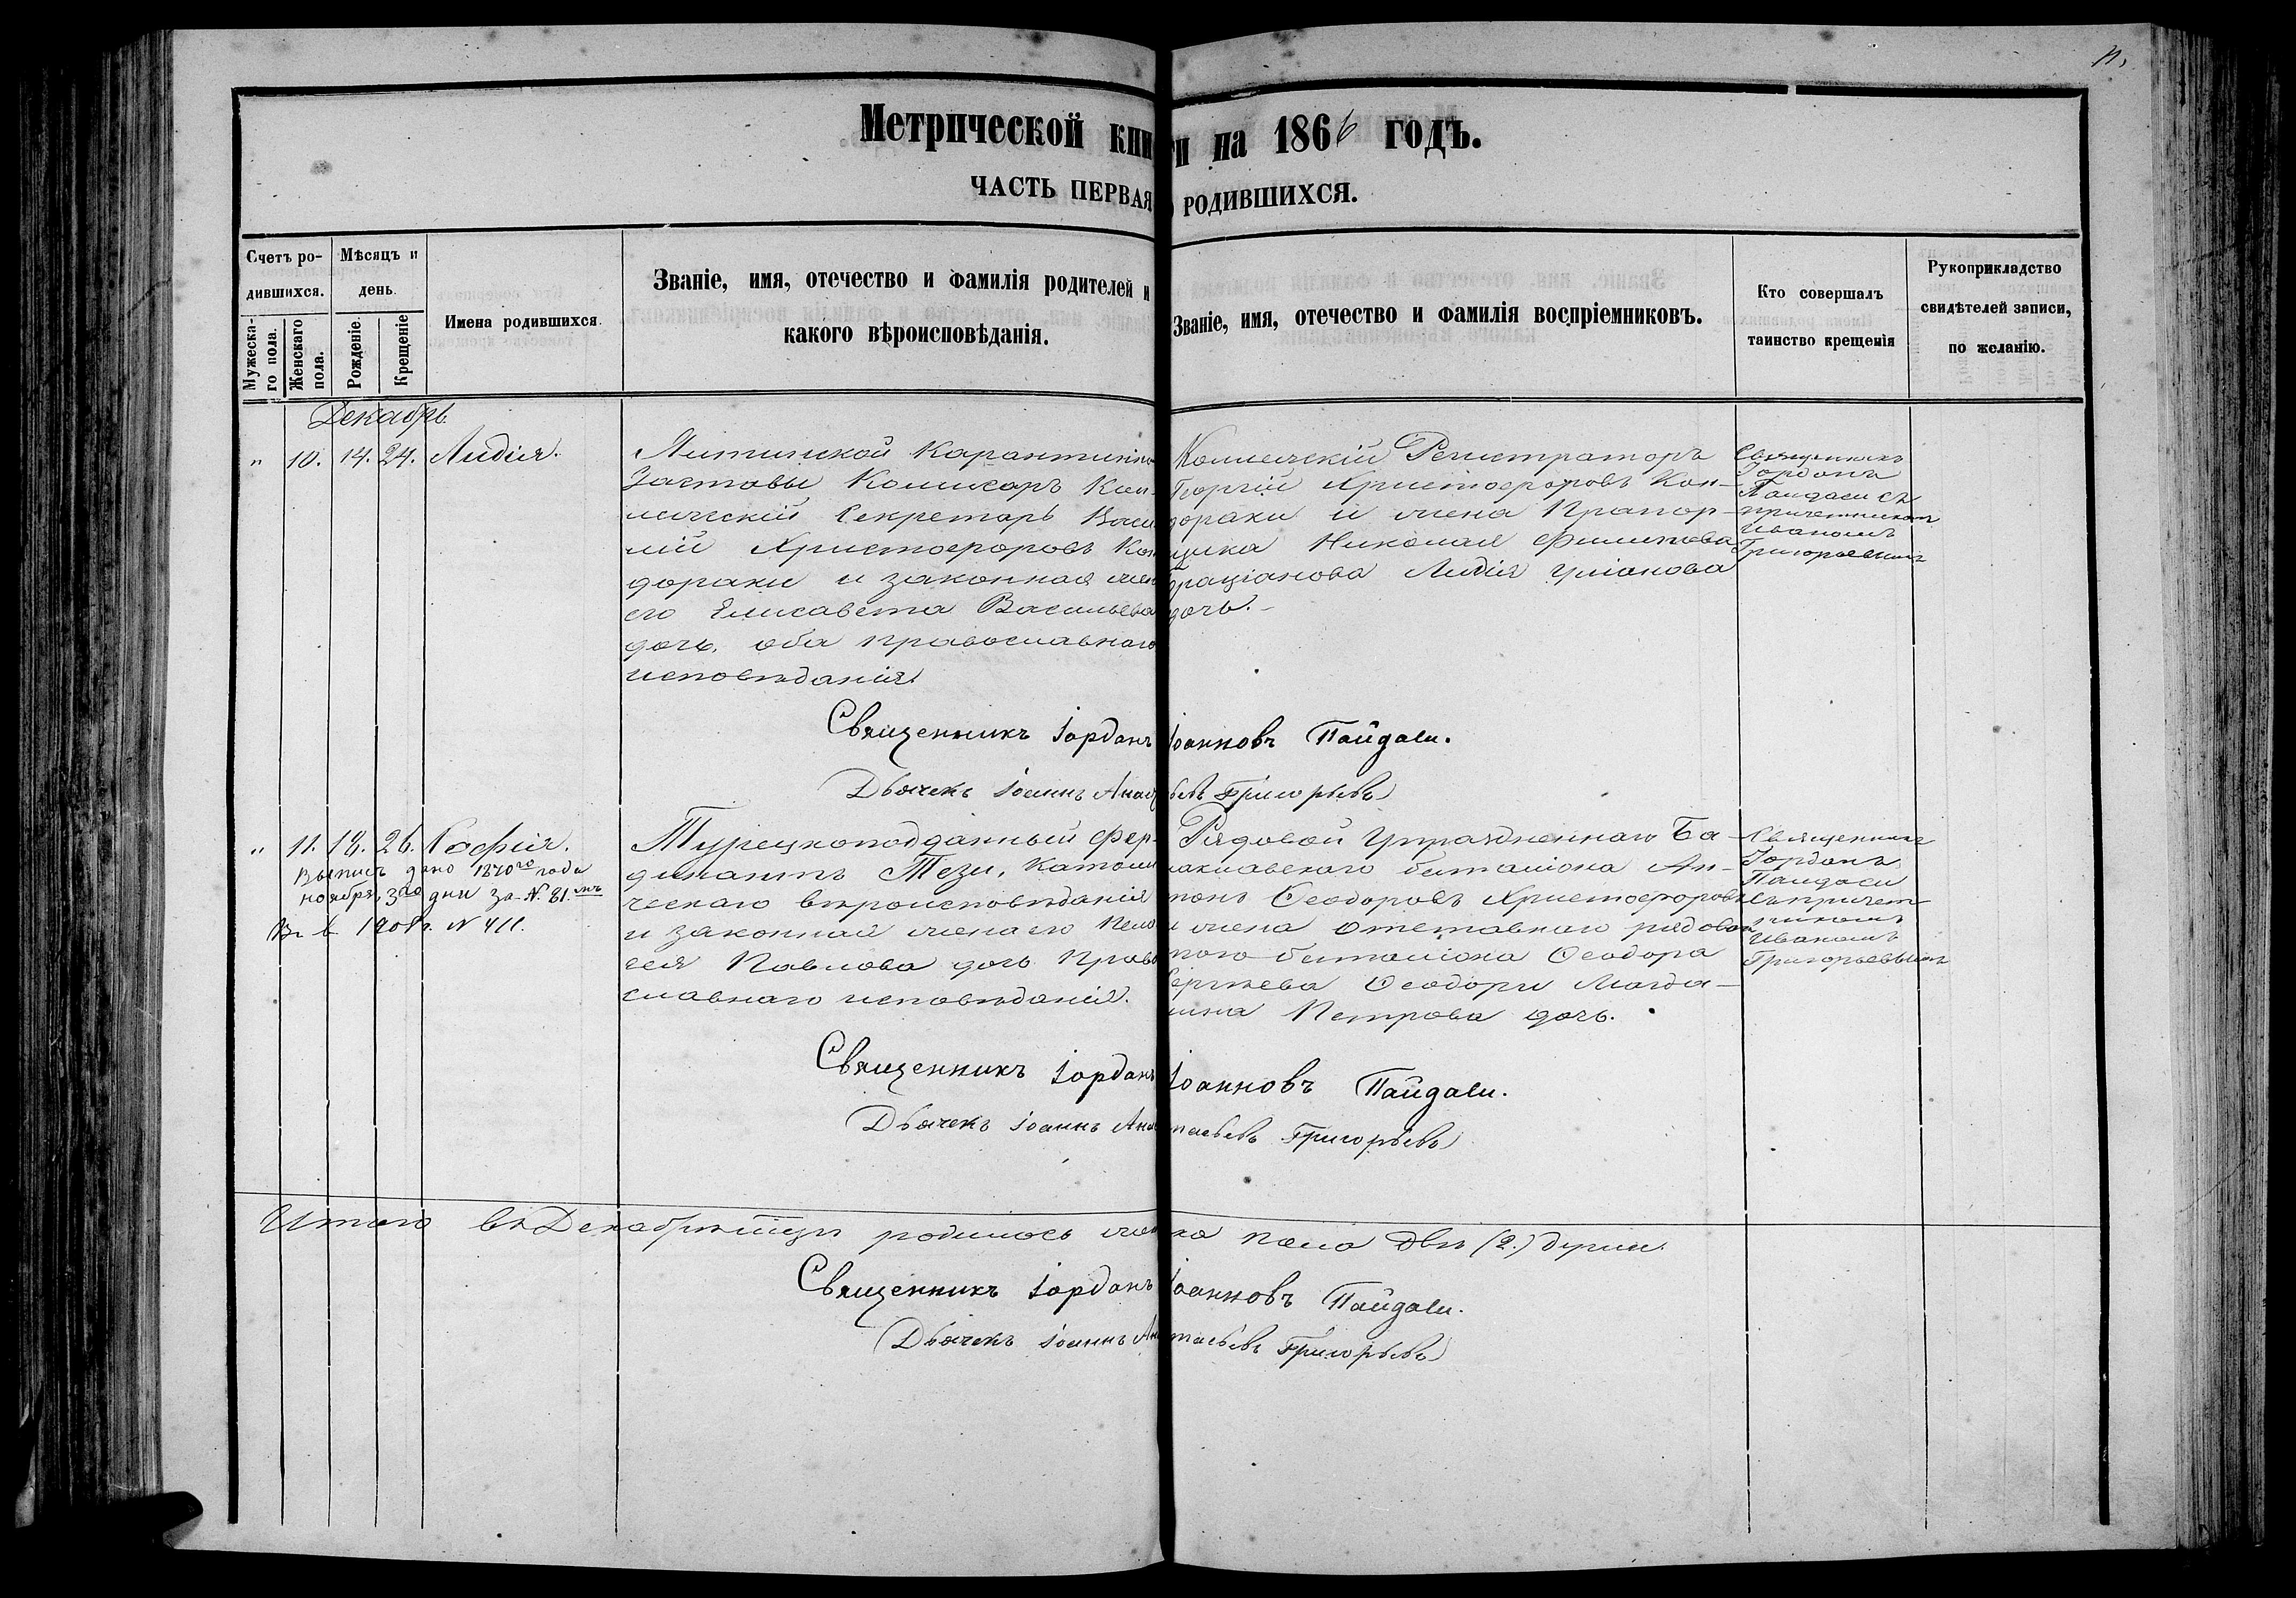 11,
Метрической книги на 1866 годъ.
ЧАСТЬ ПЕРВАЯ О РОДИВШИХСЯ.
Счетъ ро-
дившихся.
Мужеска-
го пола.
Женскаго
пола.
Мѣсяцъ и
день.
Рожденіе.
Крещеніе
Имена родившихся.
Званіе, имя, отечество и фамилія родителей и
какого вѣроисповѣданія.
Званіе, имя, отечество и фамилія воспріемниковъ.
Кто совершалъ
таинство крещенія
Рукоприкладство
свидѣтелей записи,
по желанію.
Декабрь.
" 10. 14. 24. Лидія.
Ялтинской Карантинно
Заставы Комисаръ Кол-
лежскій Секретарь Васи
лій Христофоровъ Кон
дораки и законная жен
его Елисавета Васильева
дочь, оба православнаго
исповѣданія.
Коллежскій Регистраторъ
Георгій Христофоровъ Кон-
дораки и жена Прапор-
щика Николая Филипова
Граціанова Лидія
дочь.
Священникъ
Іорданъ
Пайдаси съ
причетникомъ
Иваномъ
Григорьевымъ
Священникъ Іорданъ Іоанновъ Пайдаси.
Дьячекъ Іоаннъ Анастасьевъ Григорьевъ
" 11. 18. 26. Софія.
Выпись дано 1870го года
ноября 3го дня за №. 81.мъ
В. в. 1908 г. № 411.
Турецкоподданный Фер-
динантъ Тези, Католи
ческаго вѣроисповѣданія
и законная жена его
Павлова дочь Право
славнаго исповѣданія.
Рядовой Упраздненнаго Ба-
лаклавскаго баталіона Ан-
тонъ Ѳеодоровъ Христофоровъ
и жена отставнаго рядова
того баталіона Ѳеодора
Сергѣева Ѳеодори Магда-
лина Петрова дочь.
Священникъ
Іорданъ
Пайдаси
съ причет-
никомъ
Иваномъ
Григорьевымъ
Священникъ Іорданъ Іоанновъ Пайдаси.
Дьячекъ Іоаннъ Анастасьевъ Григорьевъ
Итого въ Декабрѣ мцѣ родилось женска пола двѣ (2.) души.
Священникъ Іорданъ Іоанновъ Пайдаси.
Дьячекъ Іоаннъ Анастасьевъ Григорьевъ